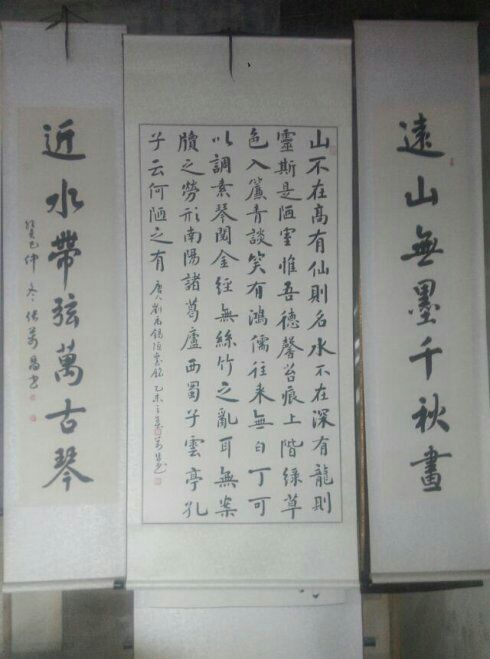 遠山無墨千秋畫
山不在高有仙則名水不在深有龍則
靈斯是陋室惟吾德馨苔痕上階緑草
色入簾青談笑有鴻儒往来無白丁可
以調素琴閲金經無絲竹之亂耳無案
牘之勞形南陽諸葛廬西蜀子雲亭孔
子云何陋之有 唐人劉禹錫陋室銘 乙未之夏
近水帶弦萬古琴
癸巳仲冬张萬昌书